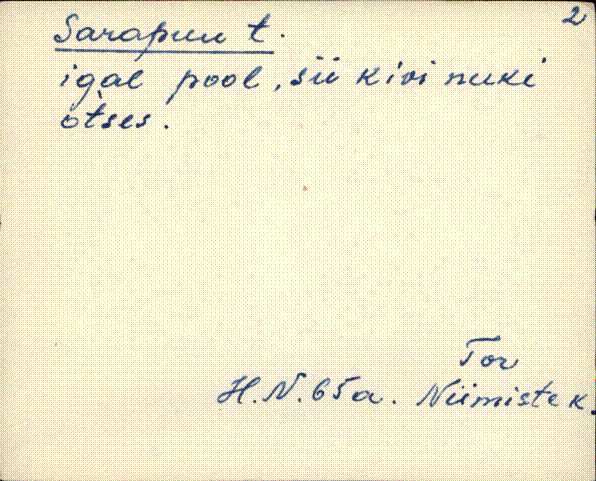 2
Sarapuu t.
igal pool, sii kivi nuki
otses.
Tor
H.N. 65 a. Niimiste k.